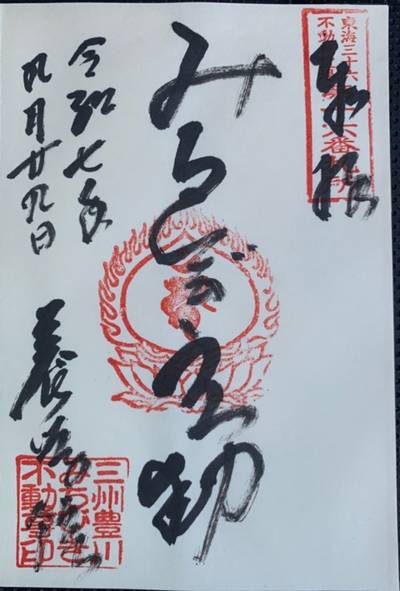 東海三十六
不動
六番
奉拝
みちびき不動
令和七年
九月廿九日
養学院
三州豊川
みちびき
不動尊印